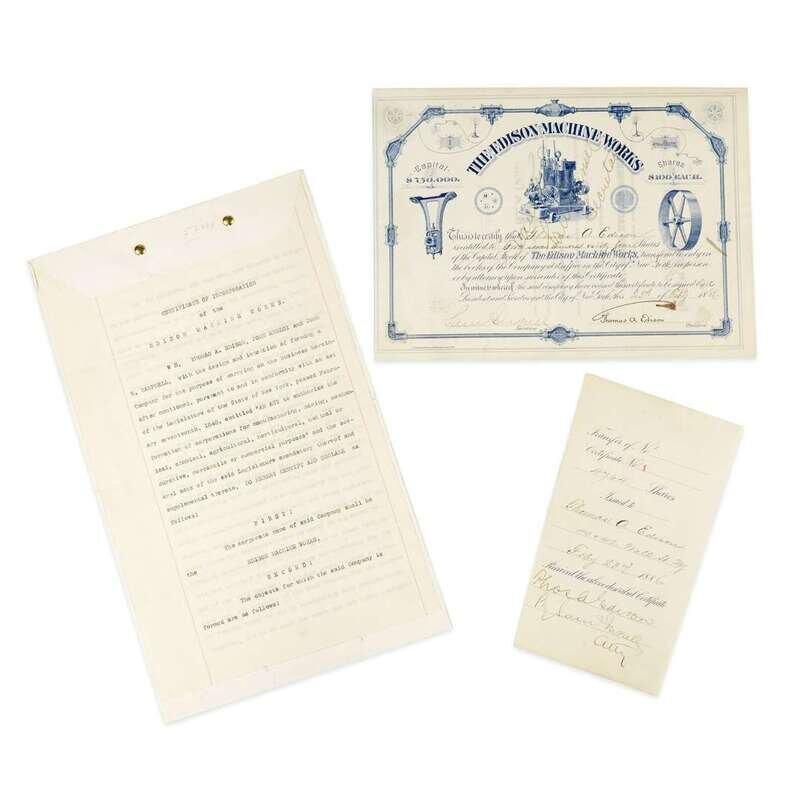 CERTIFICATE OF INCORPORATION
of the
EDISON MACHINE WORKS.
WE, THOMAS A. EDISON, JOHN KRUESI AND JOHN
H. CAMPBELL, with the design and intention of forming a
Company for the purpose of carrying on the business herein-
after mentioned, pursuant to and in conformity with an act
of the Legislature of the State of New York, passed Febru-
ary seventeenth, 1848, entitled "AN ACT to authorize the
formation of corporations for manufacturing, mining, mechan-
ical, chemical, agricultural, horticultural, medical or
curative, mercantile or commercial purposes" and the sev-
eral acts of the said Legislature amendatory thereof and
supplemental thereto, DO HEREBY CERTIFY AND DECLARE as
follows:
FIRST:
The corporate name of said Company shall be
the EDISON MACHINE WORKS.
SECOND:
The objects for which the said Company is
formed are as follows:
THE EDISON MACHINE WORKS
Capital
$750,000.
Shares
$100 EACH.
This is to certify that Thomas A. Edison
is entitled to Shares
of the Capital Stock of The Edison Machine Works, transferable only in
the books of the Company at its office in the City of New York, in person
or by attorney upon surrender of this Certificate.
In witness whereof, the said company have caused this certificate to be signed by its
President and Secretary at the City of New York, this 1886
Thomas A. Edison
Transfer of No
Certificate No
Shares
Issued to
Thomas A. Edison
Wall St NY
1886
Received the above mentioned Certificate
Thos A Edison
Insull
Atty